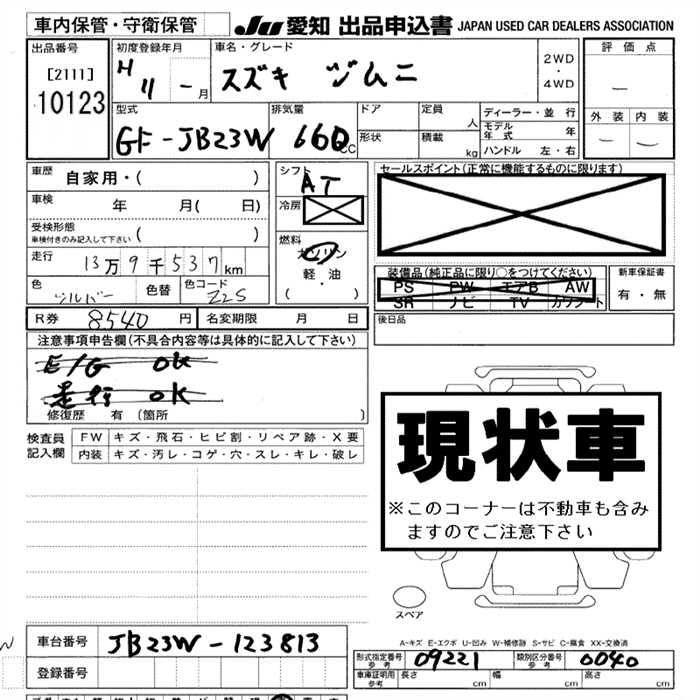 車内保管・守衛保管
JU 愛知 出品申込書 JAPAN USED CAR DEALERS ASSOCIATION
出品番号
[2111]
10123
初度登録年月
H 11 - 月
車名・グレード
スズキ ジムニ
2WD
・
4WD
評価点
—
外装 内装
— —
型式
GF-JB23W
排気量
660cc
ドア
形状
定員 人
積載 kg
ディーラー・並行
モデル年式 年
ハンドル 左・右
車歴
自家用・( )
車検 年 月( 日)
受検形態
車検付きのみ記入して下さい ( )
走行
13万9千537km
色
シルバー
色替
色コード
Z2S
シフト
AT
冷房
燃料
ガソリン
軽・油
( ・ )
セールスポイント(正常に機能するものに限ります)
装備品(純正品に限り○をつけてください)
PS PW エアB AW
SR ナビ TV カワシート
新車保証書
有・無
後日品
R券 8540 円
名変期限 月 日
注意事項申告欄(不具合内容等は具体的に記入して下さい)
E/G OK
走行 OK
修復歴 有 (箇所 )
検査員
記入欄
FW キズ・飛石・ヒビ割・リペア跡・X要
内装 キズ・汚レ・コゲ・穴・スレ・キレ・破レ
現状車
※このコーナーは不動車も含み
ますのでご注意下さい
スペア
A-キズ E-エクボ U-凹み W-補修跡 S-サビ C-腐食 XX-交換済
車台番号 JB23W-123813
登録番号
型式指定番号
参考
09221
類別区分番号
参考
0040
車庫証明用
参考
長さ cm 幅 cm 高さ cm